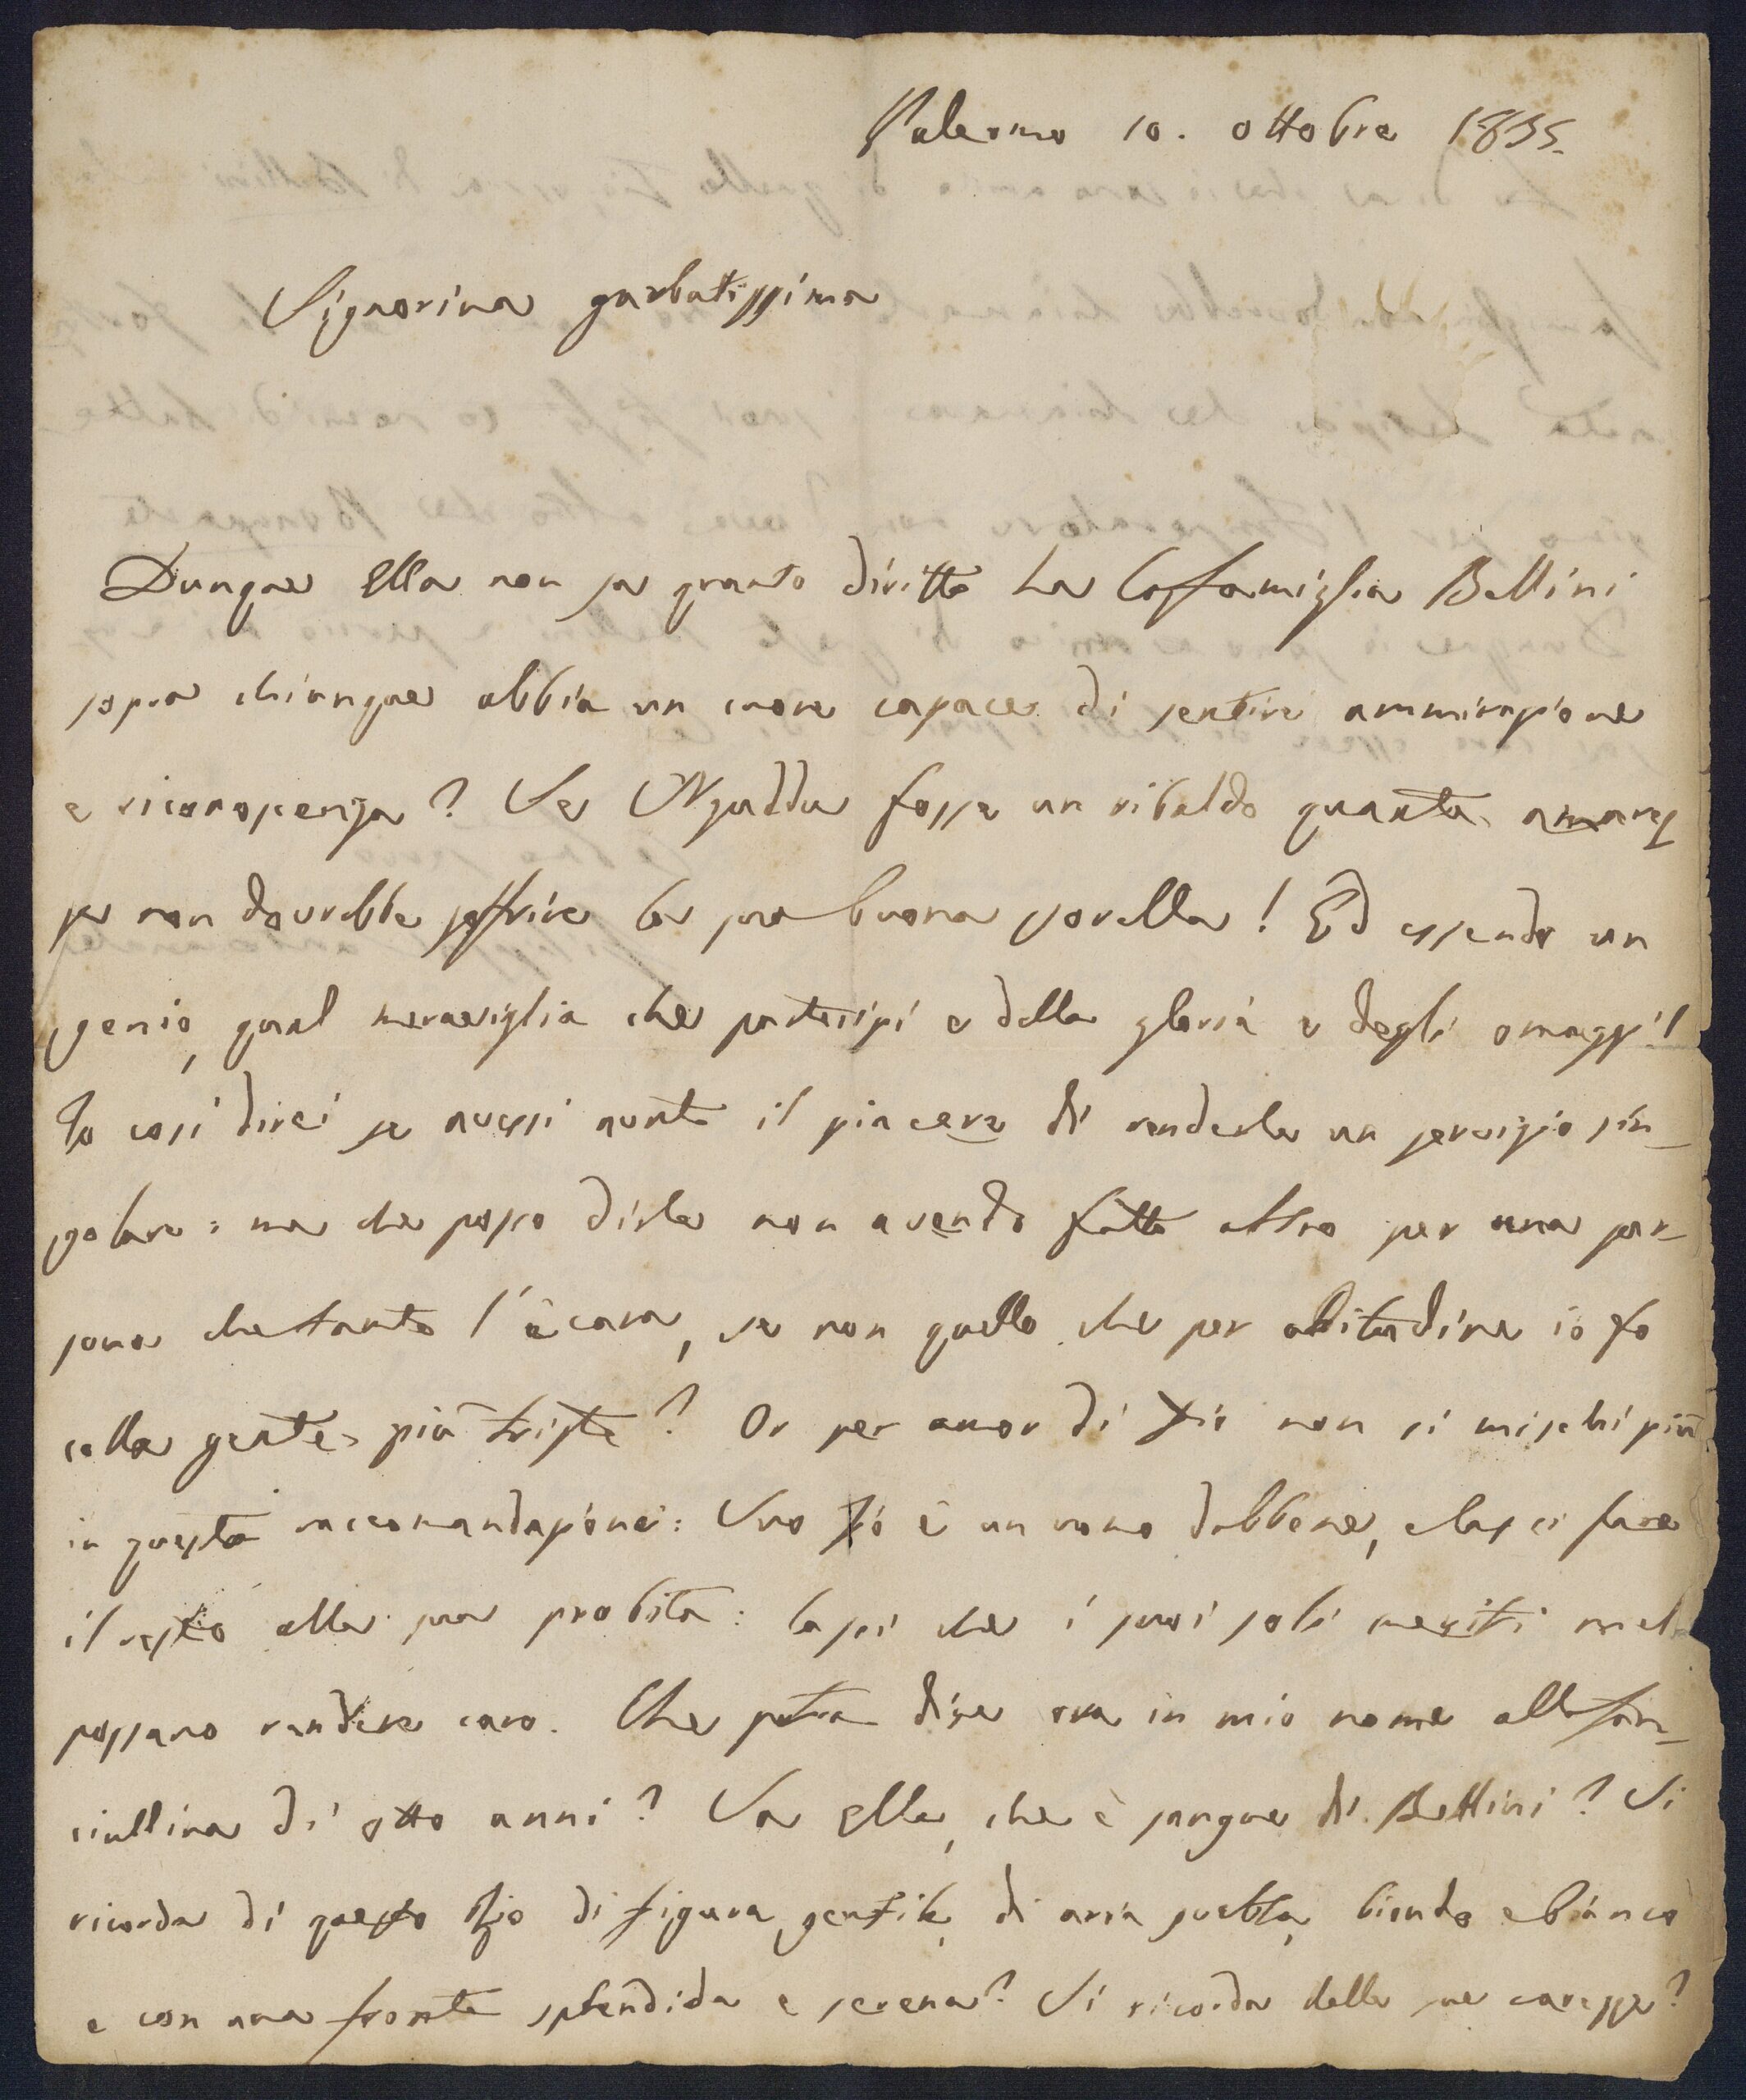 Palermo 10. ottobre 1835.
Signorina garbatissima
Dunque Ella non sa quanto diritto ha la famiglia Bellini
sopra chiunque abbia un cuore capace di sentire ammirazione
e riconoscenza? Se Nzuddu fosse un ribaldo quante amarez
ze non dovrebbe soffrire la sua buona sorella! Ed essendo un
genio, qual meraviglia che partecipi e della gloria e degli omaggi!
Io così direi se avessi avuto il piacere di renderle un servizio sin-
golare: ma che posso dirle non avendo fatto altro per una per-
sona che tanto l'è cara, se non quello che per abitudine io fo
colla gente più trista? Or per amor di Dio non si mischi più
in questa raccomandazione: Suo zio è un uomo dabbene, e lasci fare
il resto alla sua probità: lasci che i suoi soli meriti mel
possano rendere caro. Che potrà dire ora in mio nome alla fan-
ciullina di otto anni? Sa Ella, che è sangue di Bellini? Si
ricorda di questo Zio di figura gentile, di aria svelta, biondo e bianco
e con una fronte splendida e serena? Si ricorda delle sue carezze?